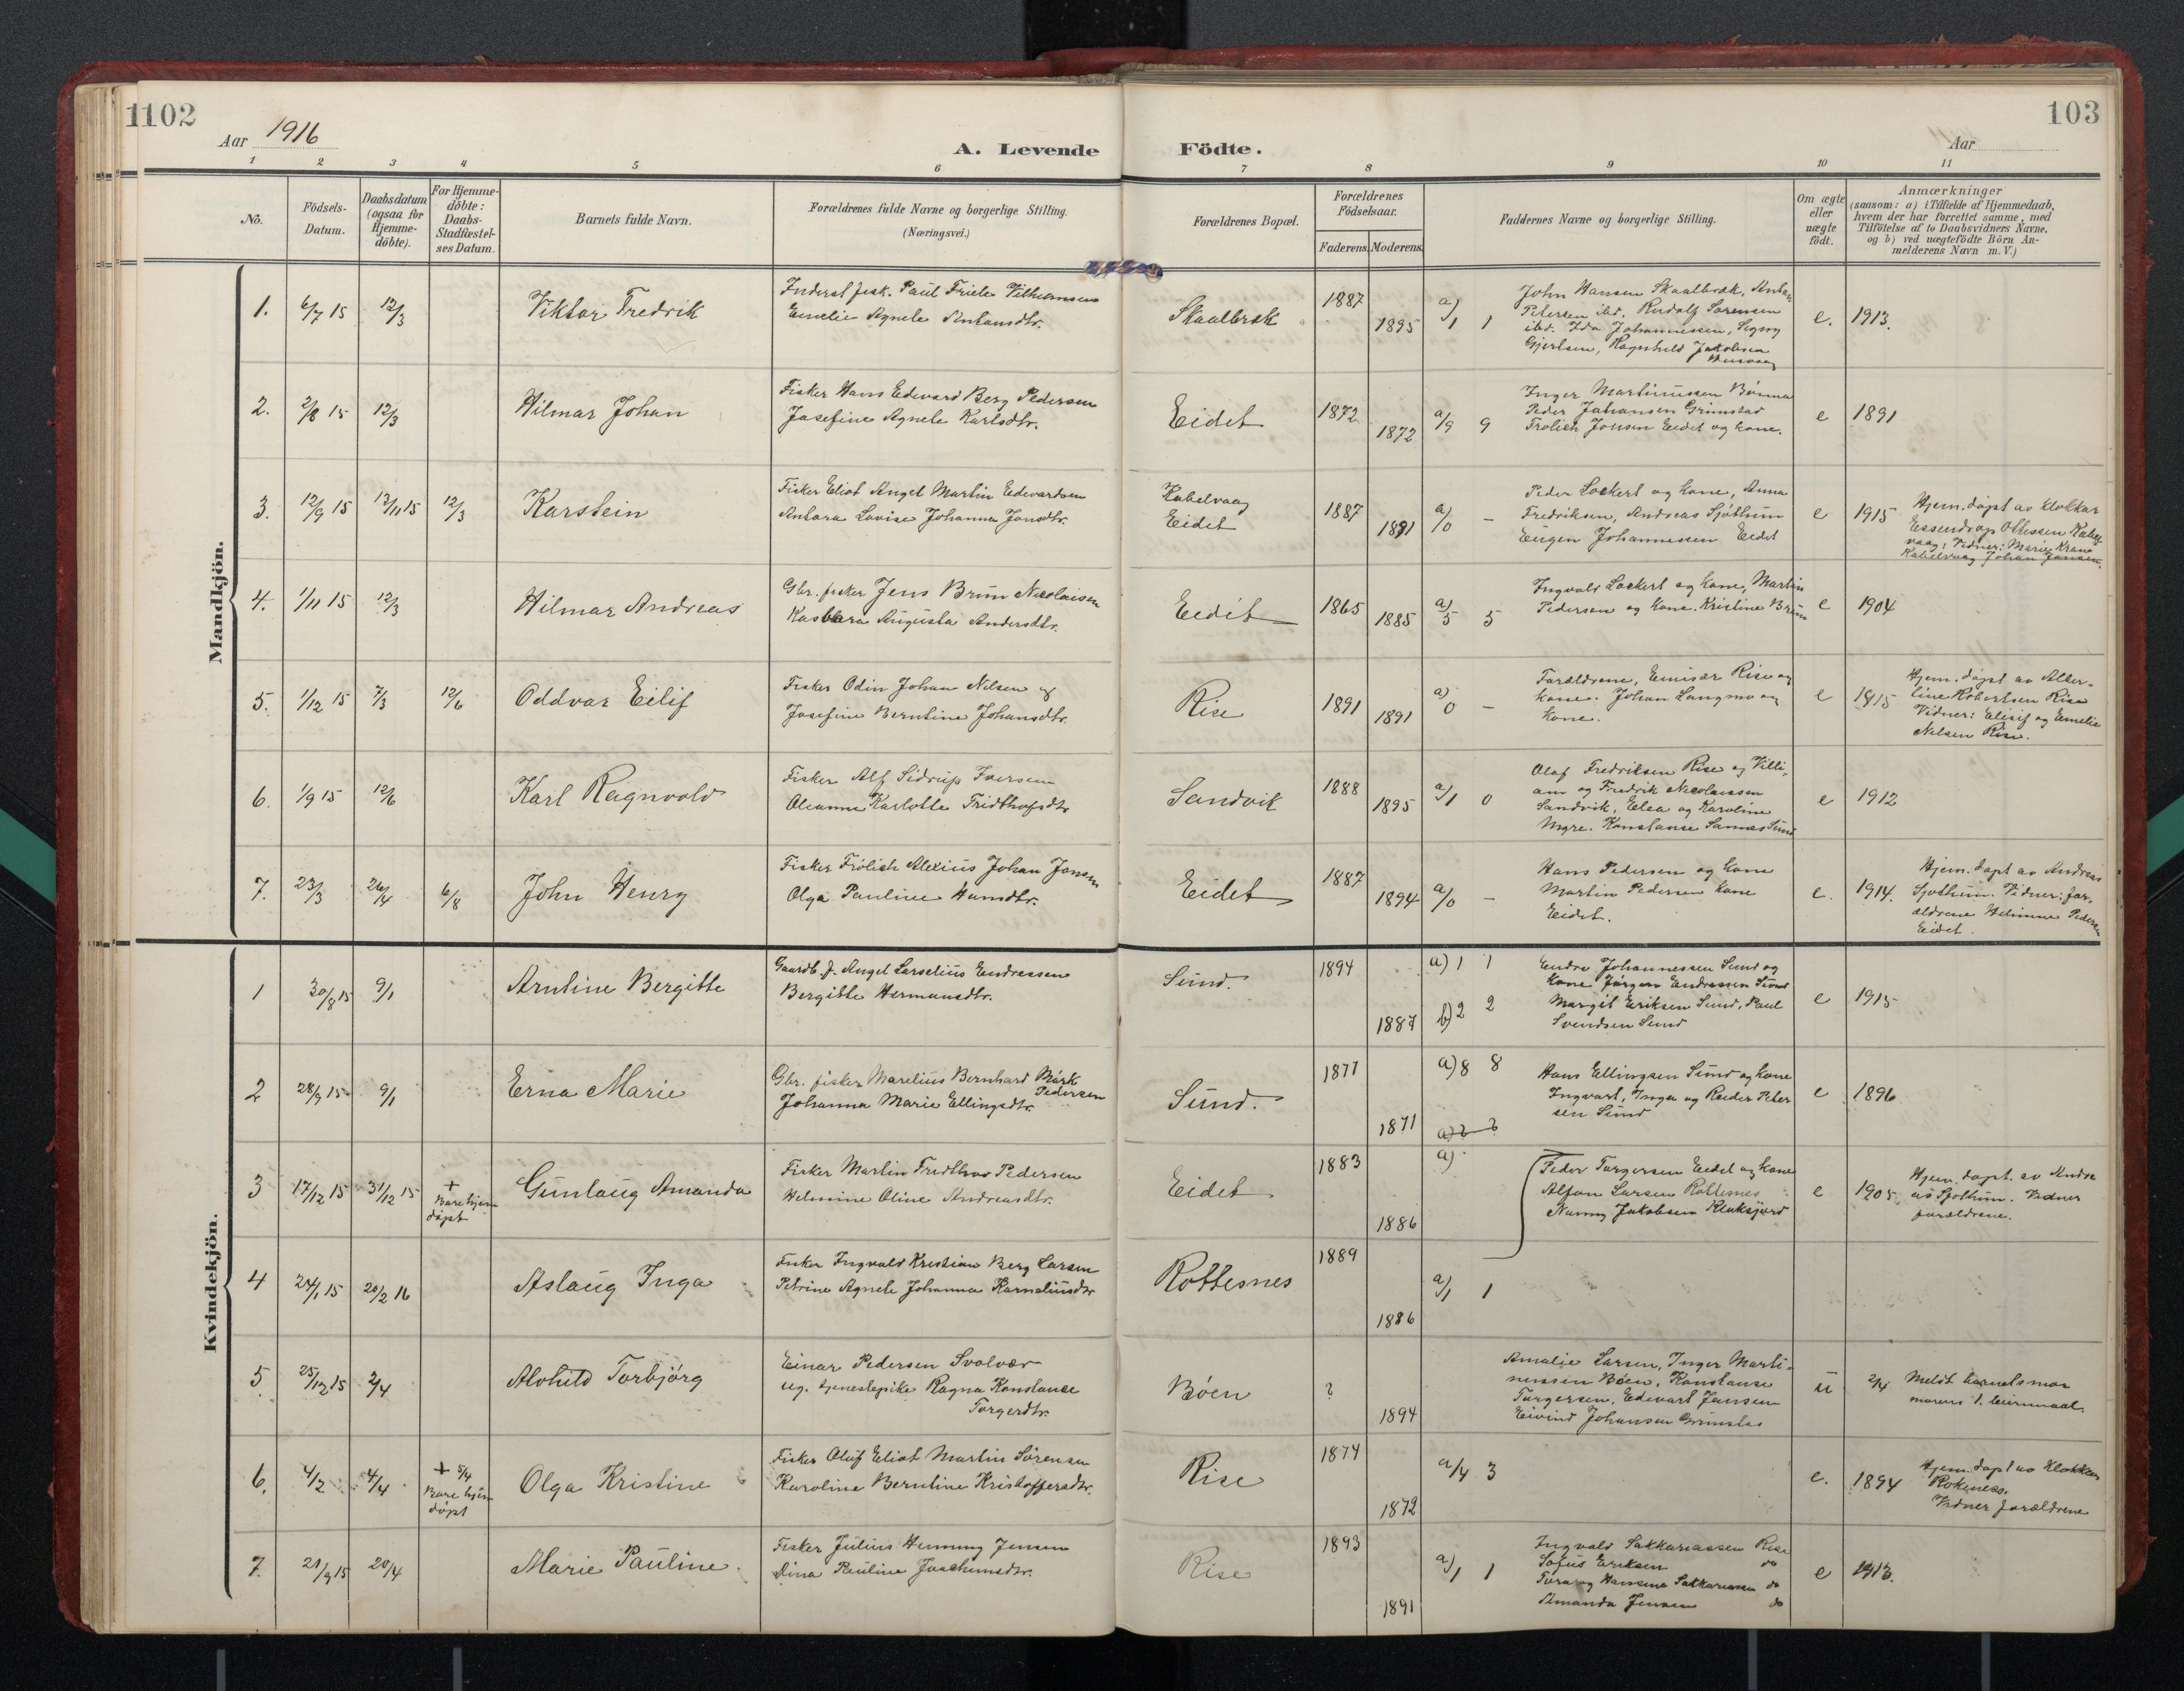 1102
103
Aar 1916
A. Levende Födte.
Aar
1 2 3 4 5 6 7 8 9 10 11
Nö.
Födsels-Datum.
Daabsdatum (ogsaa for Hjemme-döbte).
For Hjemme-döbte: Daabs-Stadfæstel-ses Datum.
Barnets fulde Navn.
Forældrenes fulde Navne og borgerlige Stilling.
(Næringsvei.)
Forældrenes Bopæl.
Forældrenes Födselsaar.
Faderens. Moderens.
Faddernes Navne og borgerlige Stilling.
Om ægte eller uægte födt.
Anmærkninger
(saasom: a) i Tilfælde af Hjemmedaab,
hvem der har forrettet samme, med
Tilföielse af to Daabsvidners Navne,
og b) ved uægtefödte Börn An-
melderens Navn m. V.)
Mandkjön.
1. 6/7 15 12/3 Viktor Fredrik
Inderst fisk. Paul Friele Vilhamsen
Emelie Agnete Antonsdtr.
Skaalbrek 1887 1895 a) 1 1
John Hansen Skaalbrek, Anton
Petersen ibd. Rudolf Sørensen
ibd. Ida Johannessen, Signy
Gjertsen, Ragnhild Jakobsen
e. 1913.
2. 2/8 15 12/3 Hilmar Johan
Fisker Hans Edevard Berg Pedersen
Josefine Agnete Karlsdtr.
Eidet 1872 1872 a/9 9
Inger Martinussen Bönna
Peder Johansen Grimstad
Frolich Jonsen Eidet og kone.
e 1891
3. 12/9 15 12/11 15 12/3 Karstein
Fisker Eliot Angel Martin Edevardsen
Antora Lovise Johanna Jonsdtr.
Kabelvaag
Eidet 1887 1891 a/0 -
Peder Lockert og kone, Anna
Fredriksen, Andreas Sjöthun
Eugen Johannessen Eidet
e 1915
Hjem. döpt av klokkar
Essendrop Ottessen Kabel-
vaag; Vidner: Marie Krane
Kabelvaag Johan Jansen.
4. 1/11 15 12/3 Hilmar Andreas
Gbr. fisker Jens Brun Nicolaisen
Kasbara Augusta Andersdtr.
Eidet 1865 1885 a) 5 5
Ingvald Lockert og kone, Martin
Pedersen og kone. Kristine Brun
e 1904
5. 1/12 15 7/3 12/6 Oddvar Eilif
Fisker Odin Johan Nilsen og
Josefine Berntine Johansdtr.
Rise 1891 1891 a) 0 -
Forældrene, Emisær Rise og
kone. Johan Langmo og
kone.
e 1915
Hjem. döpt av Alber-
tine Robertsen Rise
Vidner: Elisif og Emelie
Nilsen Rise.
6. 1/9 15 12/6 Karl Ragnvald
Fisker Alf Sidrup Iversen
Oleanna Karlotte Fridthofsdtr
Sandvik 1888 1895 a/1 0
Olaf Fredriksen Rise og Villi-
am og Fredrik Nicolaissen
Sandvik, Elea og Karoline
Myre. Konstanse Sannes Sund
e 1912
7. 23/3 26/4 6/8 John Henry
Fisker Frölich Alexius Johan Jonsen
Olga Pauline Hansdtr.
Eidet 1887 1894 a/0 -
Hans Pedersen og kone
Martin Pedersen kone
Eidet.
e. 1914.
Hjem. döpt av Andreas
Sjothun. Vidner: for-
ældrene Helmine Pedersen
Eidet.
Kvindekjön.
1 30/8 15 9/1 Arntine Bergitte
Gaardb. f. Angel Larselius Endressen
Bergitte Hermansdtr.
Sund. 1894 1887 a) 1 1 b) 2 2
Endre Johannessen Sund og
kone Jørgen Endressen Sund
Margit Eriksen Sund, Paul
Svendsen Sund
e 1915
2 28/9 15 9/1 Erna Marie
Gbr. fisker Marelius Bernhard Mörk
Pedersen
Johanna Marie Ellingsdtr.
Sund. 1871 1871 a) 8 8
a) 2 2
Hans Ellingsen Sund og kone
Ingvart, Inga og Reidar Peter
sen Sund
e 1896
3 17/12 15 31/12 15 + Bare hjem döpt Gunlaug Amanda
Fisker Martin Fredthov Pedersen
Helmine Oline Andreasdtr.
Eidet 1883 1886 a)
Peder Torgersen Eidet og kone
Alfon Larsen Rottesnes
Nanny Jakobsen Kluksjord
e 1905
Hjem. döpt. av Andre
as Sjothun. Vidner
forældrene.
4 24/1 15 20/2 16 Aslaug Inga
Fisker Ingvald Kristian Berg Larsen
Petrine Agnete Johanna Kornelius dtr
Rottesnes 1889 1886 a/1 1
5 25/12 15 2/4 Alvhild Torbjörg
Einar Pedersen Svolvær
ug. tjenestepike Ragna Konstanse
Torgerdtr.
Böen ? 1894
Amalie Larsen, Inger Marti-
nussen Böen, Konstanse
Torgersen, Edevart Jansen
Eivind Johansen Grimstad
u 2/4
Meldt barnets mor
morens 1. leiermaal.
6. 4/2 4/4 + 5/4 Bare hjem döpt Olga Kristine
Fisker Oluf Eliot Martin Sörensen
Karoline Berntine Kristoffersdtr.
Rise 1874 1872 a/4 3
e. 1894
Hjem. döpt av Klokker
Rokeness.
Vidner forældrene
7. 21/9 15 20/4 Marie Pauline
Fisker Julius Henning Jensen
Dina Pauline Joachimsdtr.
Rise 1893 1891 a/1 1
Ingvald Sakkariassen Rise
Sofus Eriksen do
Tora og Hansine Sakkariassen do
Amanda Jensen do
e 1913.